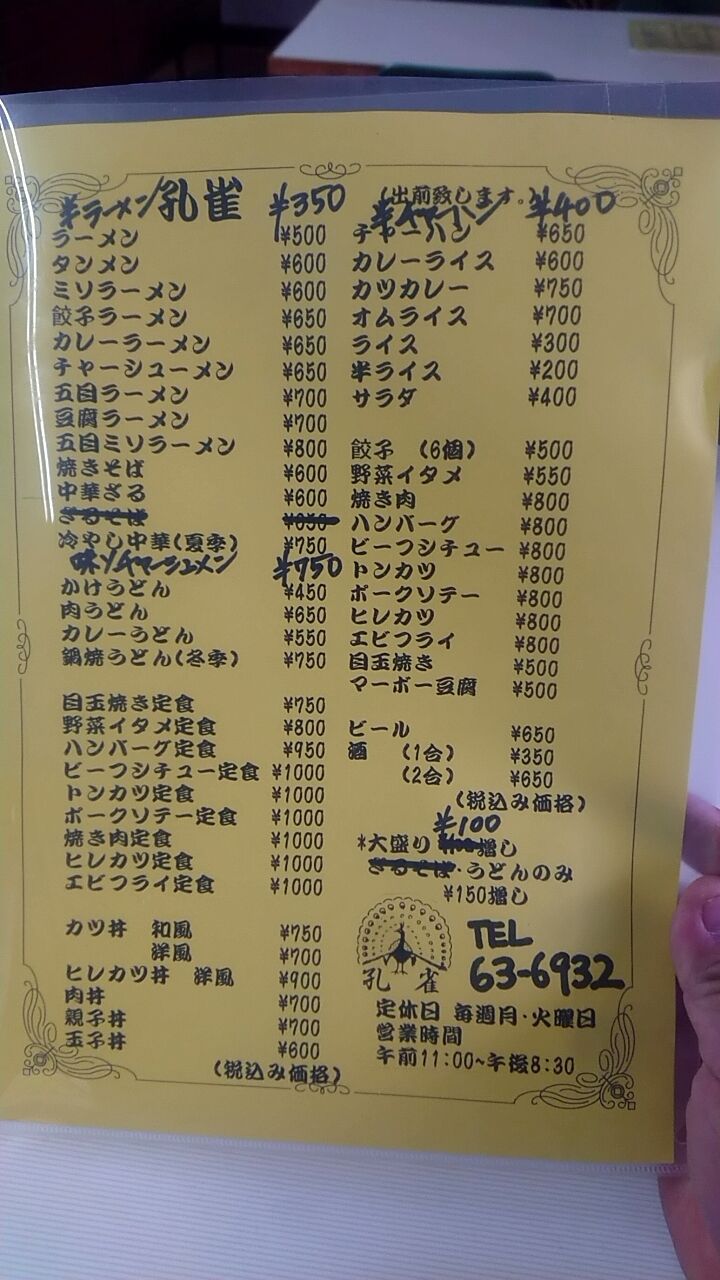 半ラーメン ¥350
孔雀
ラーメン ¥500
タンメン ¥600
ミソラーメン ¥600
餃子ラーメン ¥650
カレーラーメン ¥650
チャーシューメン ¥650
五目ラーメン ¥700
豆腐ラーメン ¥700
五目ミソラーメン ¥800
焼きそば ¥600
中華ざる ¥600
ざるそば ¥650
冷やし中華(夏季) ¥750
味ソチャーシュメン ¥750
かけうどん ¥450
肉うどん ¥650
カレーうどん ¥550
鍋焼うどん(冬季) ¥750
目玉焼き定食 ¥750
野菜イタメ定食 ¥800
ハンバーグ定食 ¥950
ビーフシチュー定食 ¥1000
トンカツ定食 ¥1000
ポークソテー定食 ¥1000
焼き肉定食 ¥1000
ヒレカツ定食 ¥1000
エビフライ定食 ¥1000
カツ丼 和風 ¥750
洋風 ¥700
ヒレカツ丼 洋風 ¥900
肉丼 ¥700
親子丼 ¥700
玉子丼 ¥600
(税込み価格)
(出前致します。)
半チャーハン ¥400
チャーハン ¥650
カレーライス ¥600
カツカレー ¥750
オムライス ¥700
ライス ¥300
半ライス ¥200
サラダ ¥400
餃子 (6個) ¥500
野菜イタメ ¥550
焼き肉 ¥800
ハンバーグ ¥800
ビーフシチュー ¥800
トンカツ ¥800
ポークソテー ¥800
ヒレカツ ¥800
エビフライ ¥800
目玉焼き ¥500
マーボー豆腐 ¥500
ビール ¥650
酒 (1合) ¥350
(2合) ¥650
(税込み価格)
¥100
*大盛り 増し
ざるそば・うどんのみ
¥150増し
孔雀
TEL
63-6932
定休日 毎週月・火曜日
営業時間
午前11:00~午後8:30